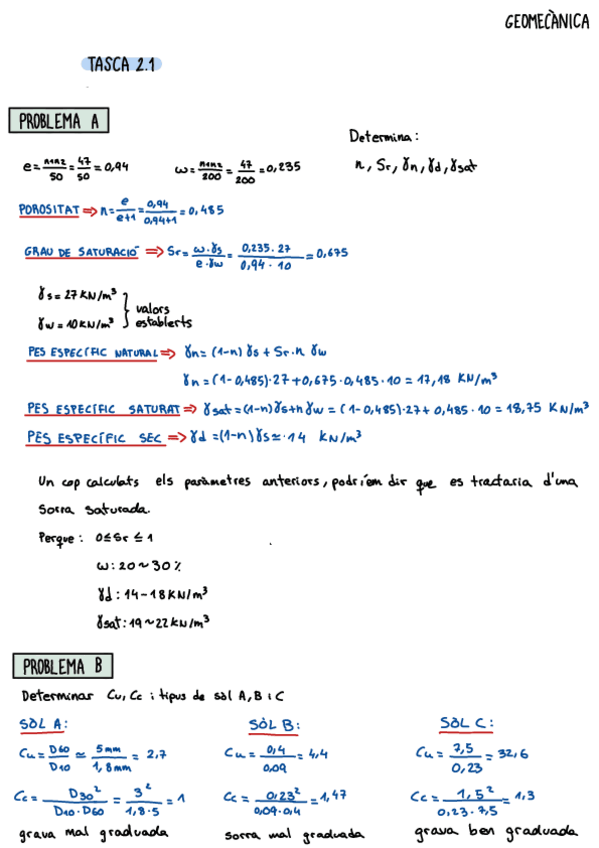 GEOMECÀNICA
TASCA 2.1
PROBLEMA A
Determina:
e = n1n2/50 = 47/50 = 0,94
ω = n1n2/200 = 47/200 = 0,235
n, Sr, γn, γd, γsat
POROSITAT ⇒ n = e/e+1 = 0,94/0,94+1 = 0,485
GRAU DE SATURACIÓ ⇒ Sr = ω·γs/e·γw = 0,235·27/0,94·10 = 0,675
γs = 27 KN/m³
γw = 10 KN/m³ } valors establerts
PES ESPECÍFIC NATURAL ⇒ γn = (1-n) γs + Sr·n γw
γn = (1-0,485)·27+0,675·0,485·10 = 17,18 KN/m³
PES ESPECÍFIC SATURAT ⇒ γsat = (1-n)γs+n γw = (1-0,485)·27+ 0,485·10 = 18,75 KN/m³
PES ESPECÍFIC SEC ⇒ γd = (1-n)γs ≃ 14 KN/m³
Un cop calculats els paràmetres anteriors, podríem dir que es tractaria d'una
sorra saturada.
Perque: 0 ≤ Sr ≤ 1
ω: 20 ~ 30 %
γd : 14-18 KN/m³
γsat: 19 ~ 22 KN/m³
PROBLEMA B
Determinar Cu, Cc i tipus de sòl A, B i C
SÒL A:
Cu = D60/D10 ≃ 5mm/1,8mm = 2,7
Cc = D30²/D10·D60 = 3²/1,8·5 = 1
grava mal graduada
SÒL B:
Cu = 0,4/0,09 = 4,4
Cc = 0,23²/0,09·0,4 = 1,47
sorra mal graduada
SÒL C:
Cu = 7,5/0,23 = 32,6
Cc = 1,5²/0,23·7,5 = 1,3
grava ben graduada